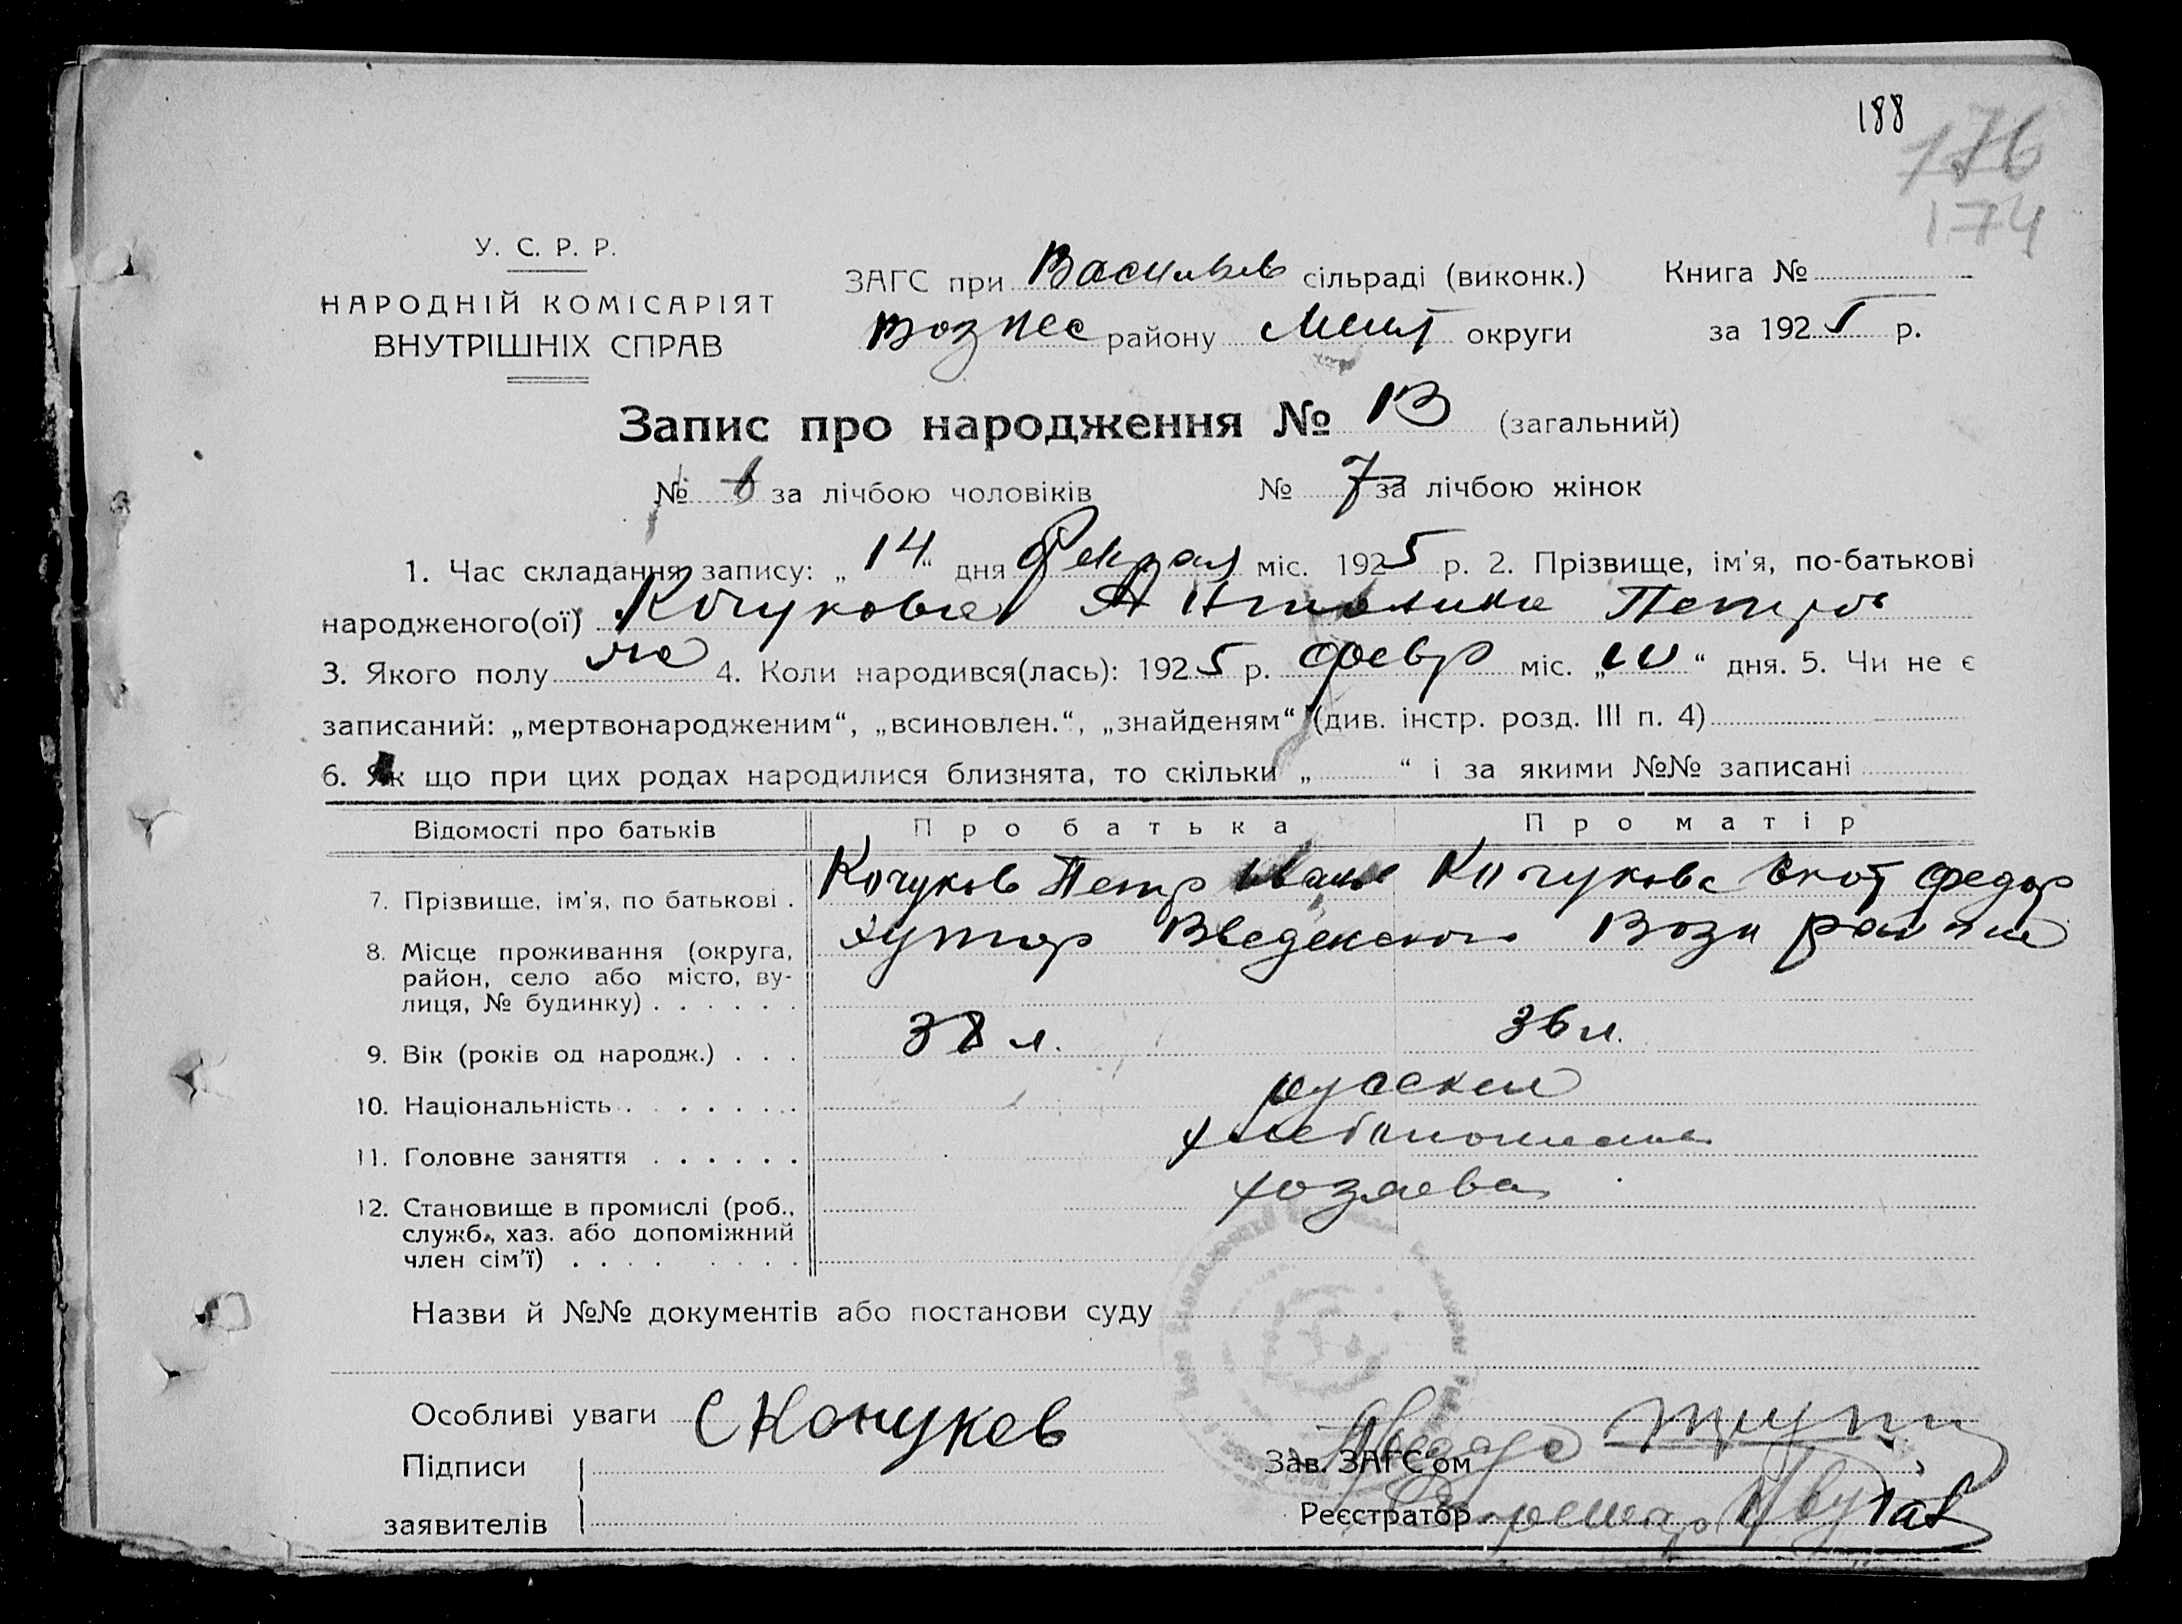 188
176
174
У. С. Р. Р.
НАРОДНІЙ КОМІСАРІЯТ
ВНУТРІШНІХ СПРАВ
ЗАГС при Васильев сільраді (виконк.) Книга №
Вознес району Мелит округи за 1925 р.
Запис про народження № 13 (загальний)
№ 6 за лічбою чоловіків № 7 за лічбою жінок
1. Час складання запису: „14“ дня міс. 1925 р. 2. Прізвище, ім'я, по-батькові
народженого(ої) Кочукова Антонина Петров
3. Якого полу 4. Коли народився(лась): 1925 р. февр міс. „ “ дня. 5. Чи не є
записаний: „мертвонародженим“, „всиновлен.“, „знайденям“ (див. інстр. розд. III п. 4)
6. Як що при цих родах народилися близнята, то скільки „ “ і за якими №№ записані
Відомості про батьків Про батька Про матір
7. Прізвище, ім'я, по батькові . Кочуков Петр Иван Кочукова Федор
8. Місце проживання (округа, район, село або місто, ву-лиця, № будинку) . . . . . . хутор Введенского Возн района
9. Вік (років од народж.) . . . 38 л. 36 л.
10. Національність . . . . . . . русские
11. Головне заняття . . . . . .
12. Становище в промислі (роб., служб., хаз. або допоміжний член сім'ї) . . . . . . . . хозяева
Назви й №№ документів або постанови суду
Особливі уваги С Кочуков
Підписи
заявителів
Зав. ЗАГС'ом
Реєстратор Секретарь